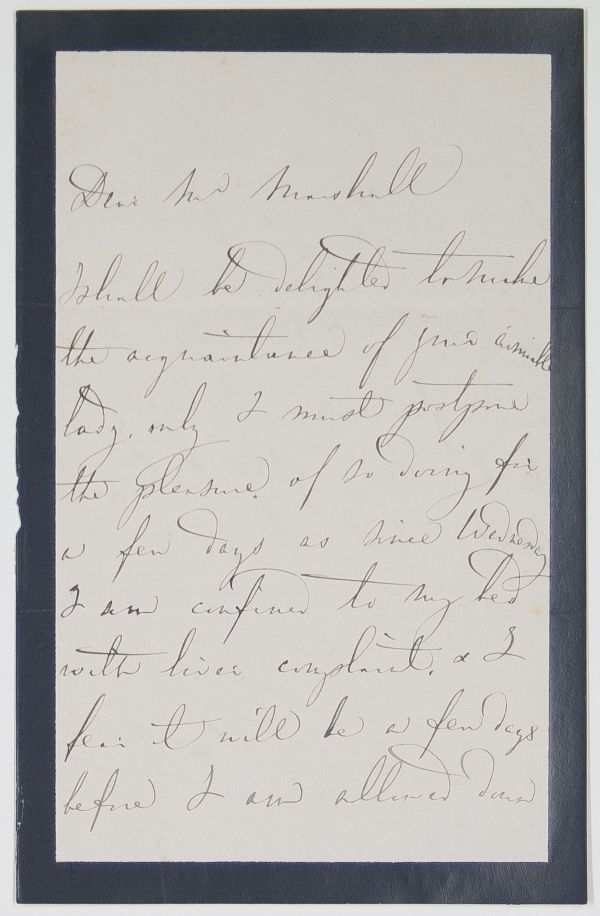 Dear Mr Marshall
I shall be delighted to make
the acquaintance of your amiable
lady, only I must postpone
the pleasure of so doing for
a few days as since Wednesday
I am confined to my bed
with liver complaint, & I
fear it will be a few days
before I am allowed down